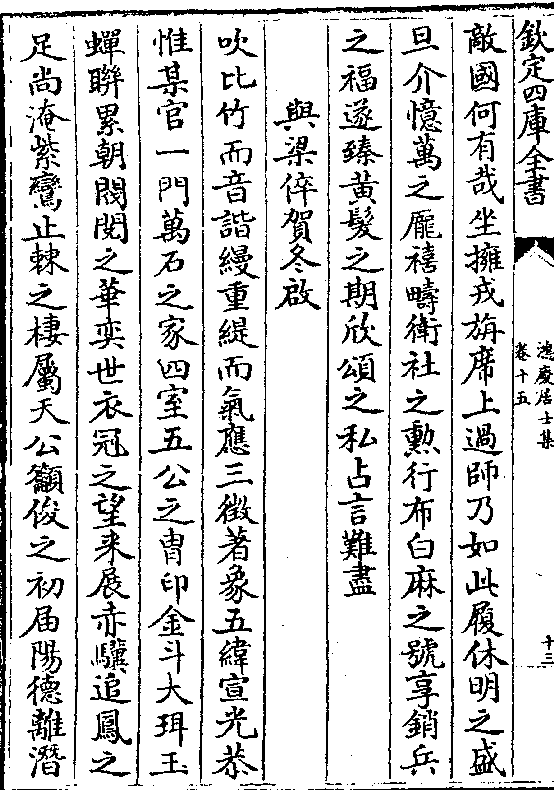 欽定四庫全書
鴻慶居士集
卷十五
十三
敵國何有哉坐擁戎旃席上過師乃如此履休明之盛
旦介憶萬之龎禧疇衛社之勲行布白麻之號享銷兵
之福遂臻黄髮之期欣頌之私占言難盡
與梁倅賀冬啟
吹比竹而音諧縵重緹而氣應三徴著象五緯宣光恭
惟某官一門萬石之家四室五公之胄印金斗大珥玉
蟬聨累朝閥閱之華奕世衣冠之望来展赤驥追鳳之
足尚淹紫鸞止棘之棲屬天公籲俊之初届陽德離潛